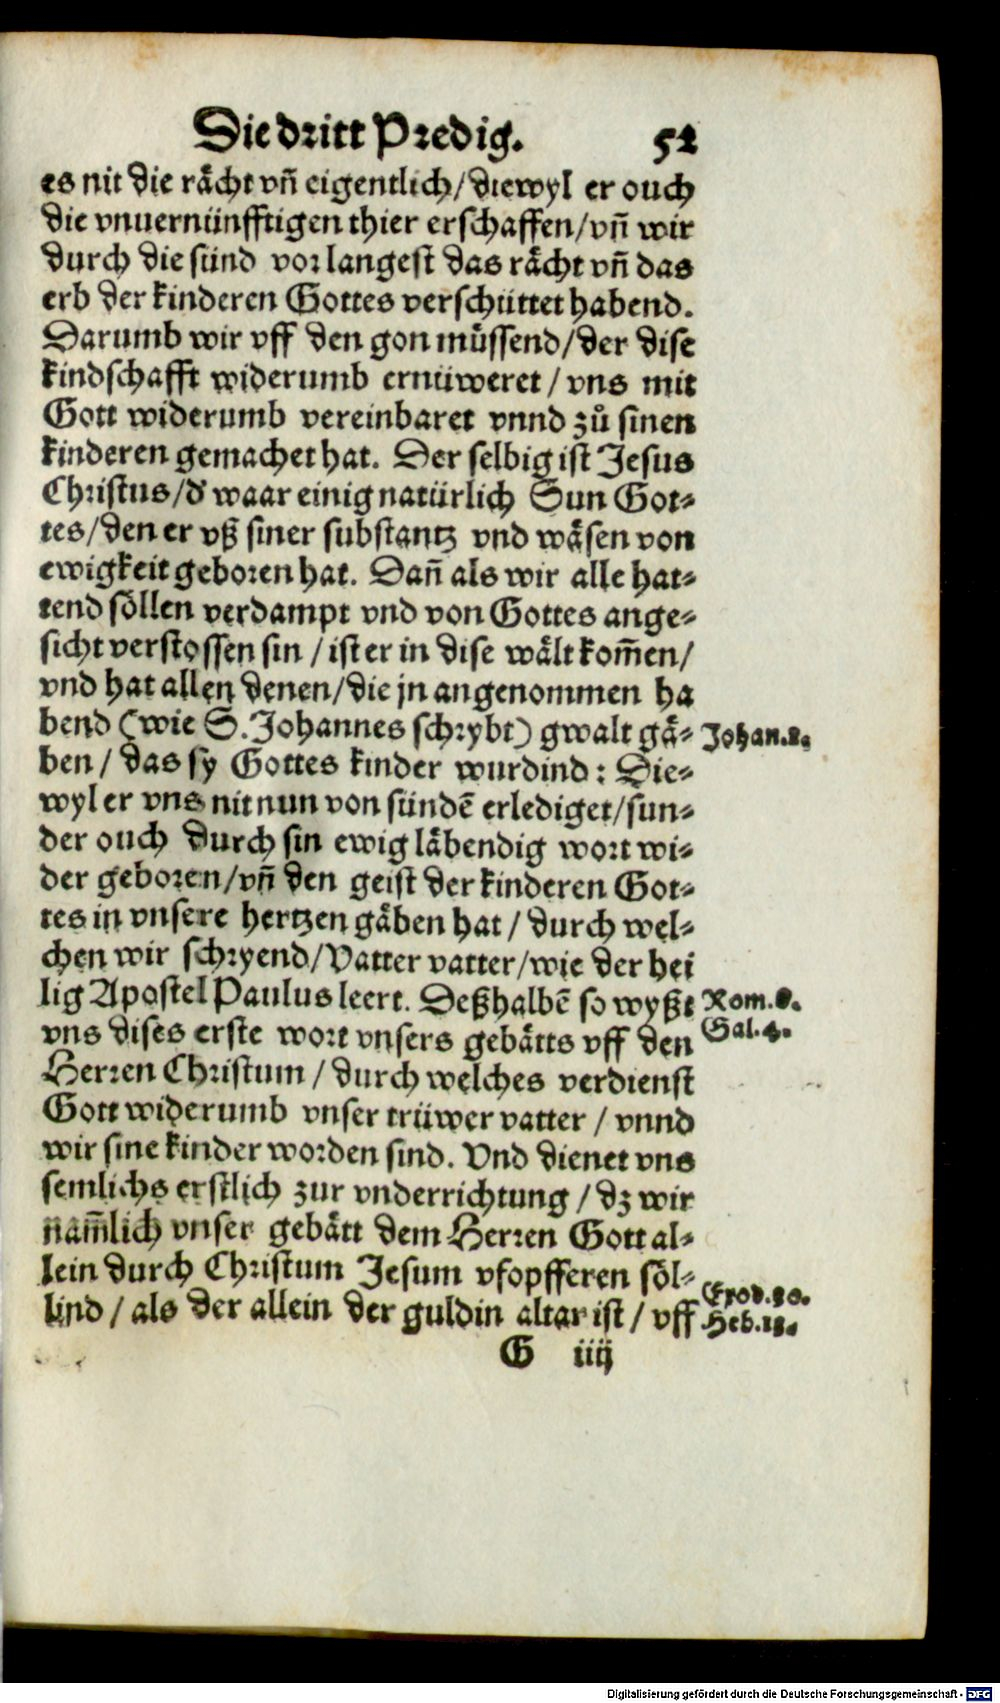 Die dritt Predig. 52
es nit die raͤcht vnd̄ eigentlich/ diewyl er ouch
die vnuernünfftigen thier erschaffen/ vn̄ wir
durch die sünd vorlangest das raͤcht vn̄ das
erb der kinderen Gottes verschüttet habend.
Darumb wir vff den gon muͤssend/ der dise
kindschafft widerumb ernüweret/ vns mit
Gott widerumb vereinbaret vnnd zuͦ sinen
kinderen gemachet hat. Der selbig ist Jesus
Christus/ d' waar einig natürlich Sun Got⸗
tes/ den er vß siner substantz vnd waͤsen von
ewigkeit geboren hat. Dan̄ als wir alle hat⸗
tend soͤllen verdampt vnd von Gottes ange⸗
sicht verstossen sin/ ist er in dise waͤlt kom̄en/
vnd hat allen denen/ die jn angenommen ha
bend (wie S. Johannes schrybt) gwalt gaͤ⸗ Johan.1.
ben/ das sy Gottes kinder wurdind: Die⸗
wyl er vns nit nun von sündē erlediget/ sun⸗
der ouch durch sin ewig laͤbendig wort wi⸗
der geboren/ vn̄ den geist der kinderen Got⸗
tes in vnsere hertzen gaͤben hat/ durch wel⸗
chen wir schryend/ Vatter vatter/ wie der hei
lig Apostel Paulus leert. Deßhalbē so wyßt Rom.8.
vns dises erste wort vnsers gebaͤtts vff den Gal.4.
Herren Christum/ durch welches verdienst
Gott widerumb vnser trüwer vatter/ vnnd
wir sine kinder worden sind. Vnd dienet vns
semlichs erstlich zur vnderrichtung/ dz wir
nam̄lich vnser gebaͤtt dem Herren Gott al⸗
lein durch Christum Jesum vfopfferen soͤl⸗ Exod.30.
lind/ als der allein der guldin altar ist/ vff Heb.13.
G iiij
Digitalisierung gefördert durch die Deutsche Forschungsgemeinschaft - DFG